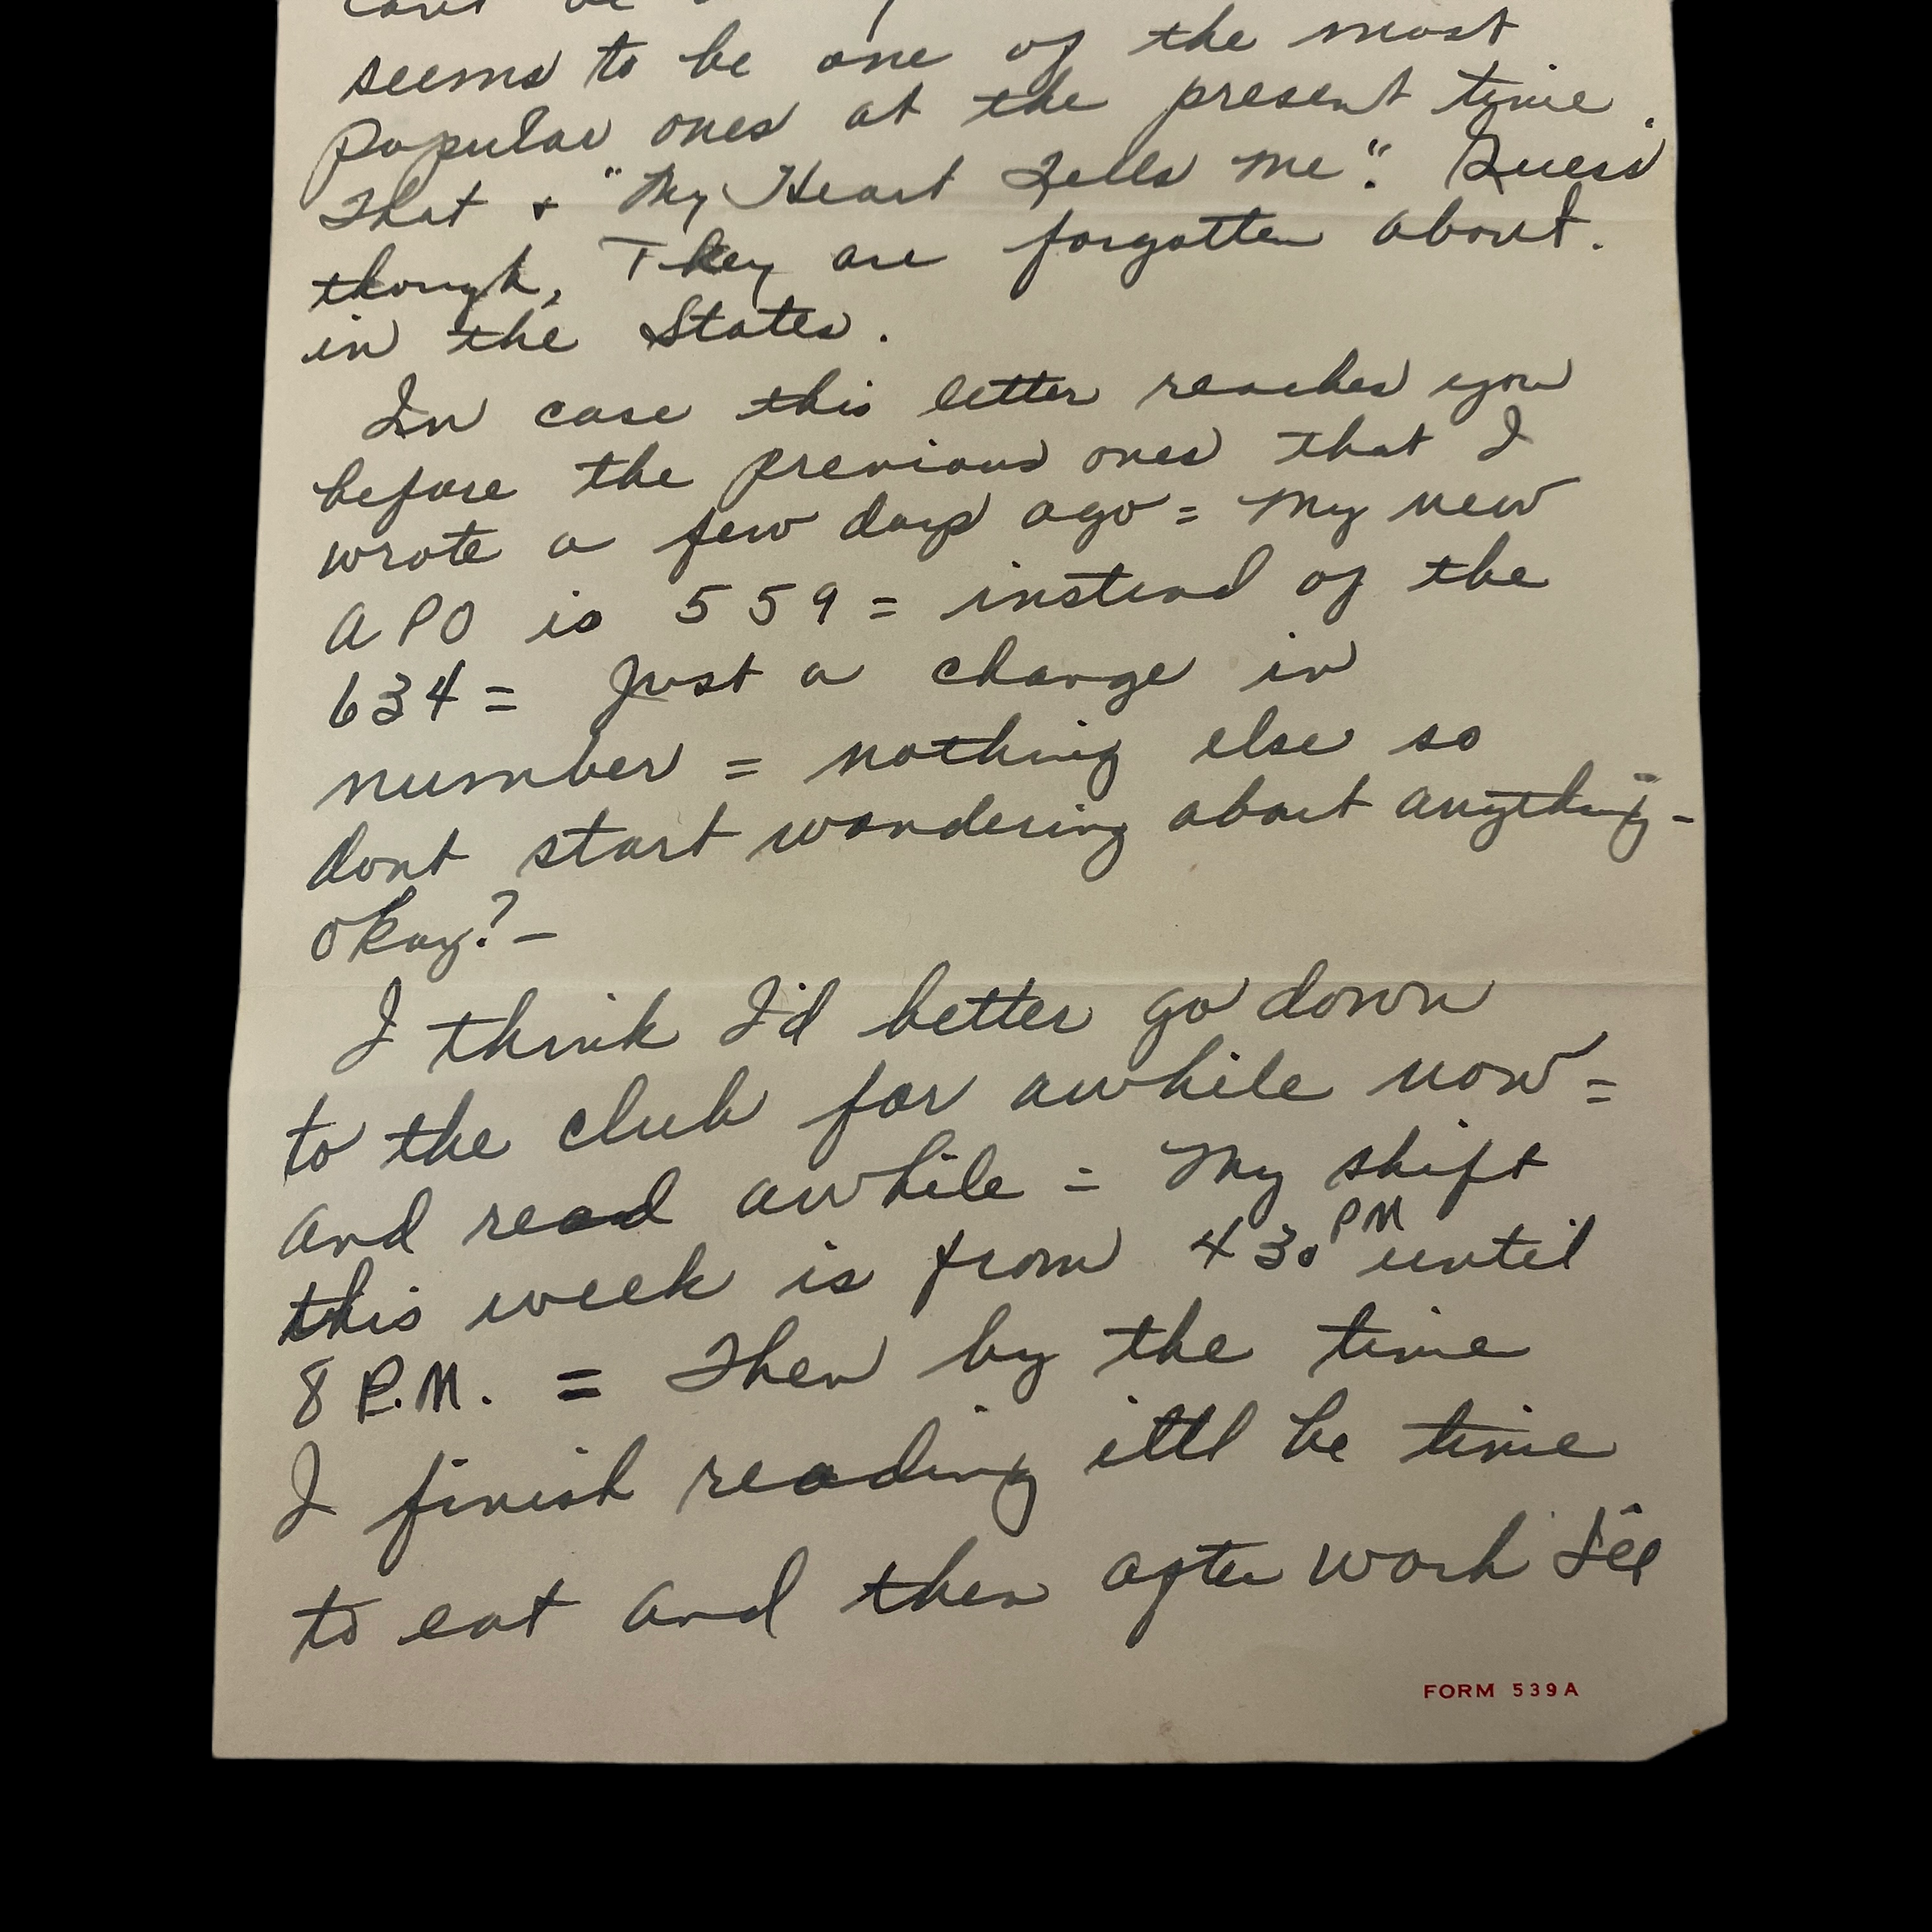 seems to be one of the most
popular ones at the present time.
That + "My Heart Tells Me". Guess
though, They are forgotten about.
in the States.
In case this letter reaches you
before the previous ones that I
wrote a few days ago = My new
APO is 559 = instead of the
634 = Just a change in
number = nothing else so
dont start wondering about anything -
okay? -
I think I'd better go down
to the club for awhile now =
and read awhile = My shift
this week is from 430 PM until
8 P.M. = Then by the time
I finish reading it'll be time
to eat and then after work I'll
FORM 539A